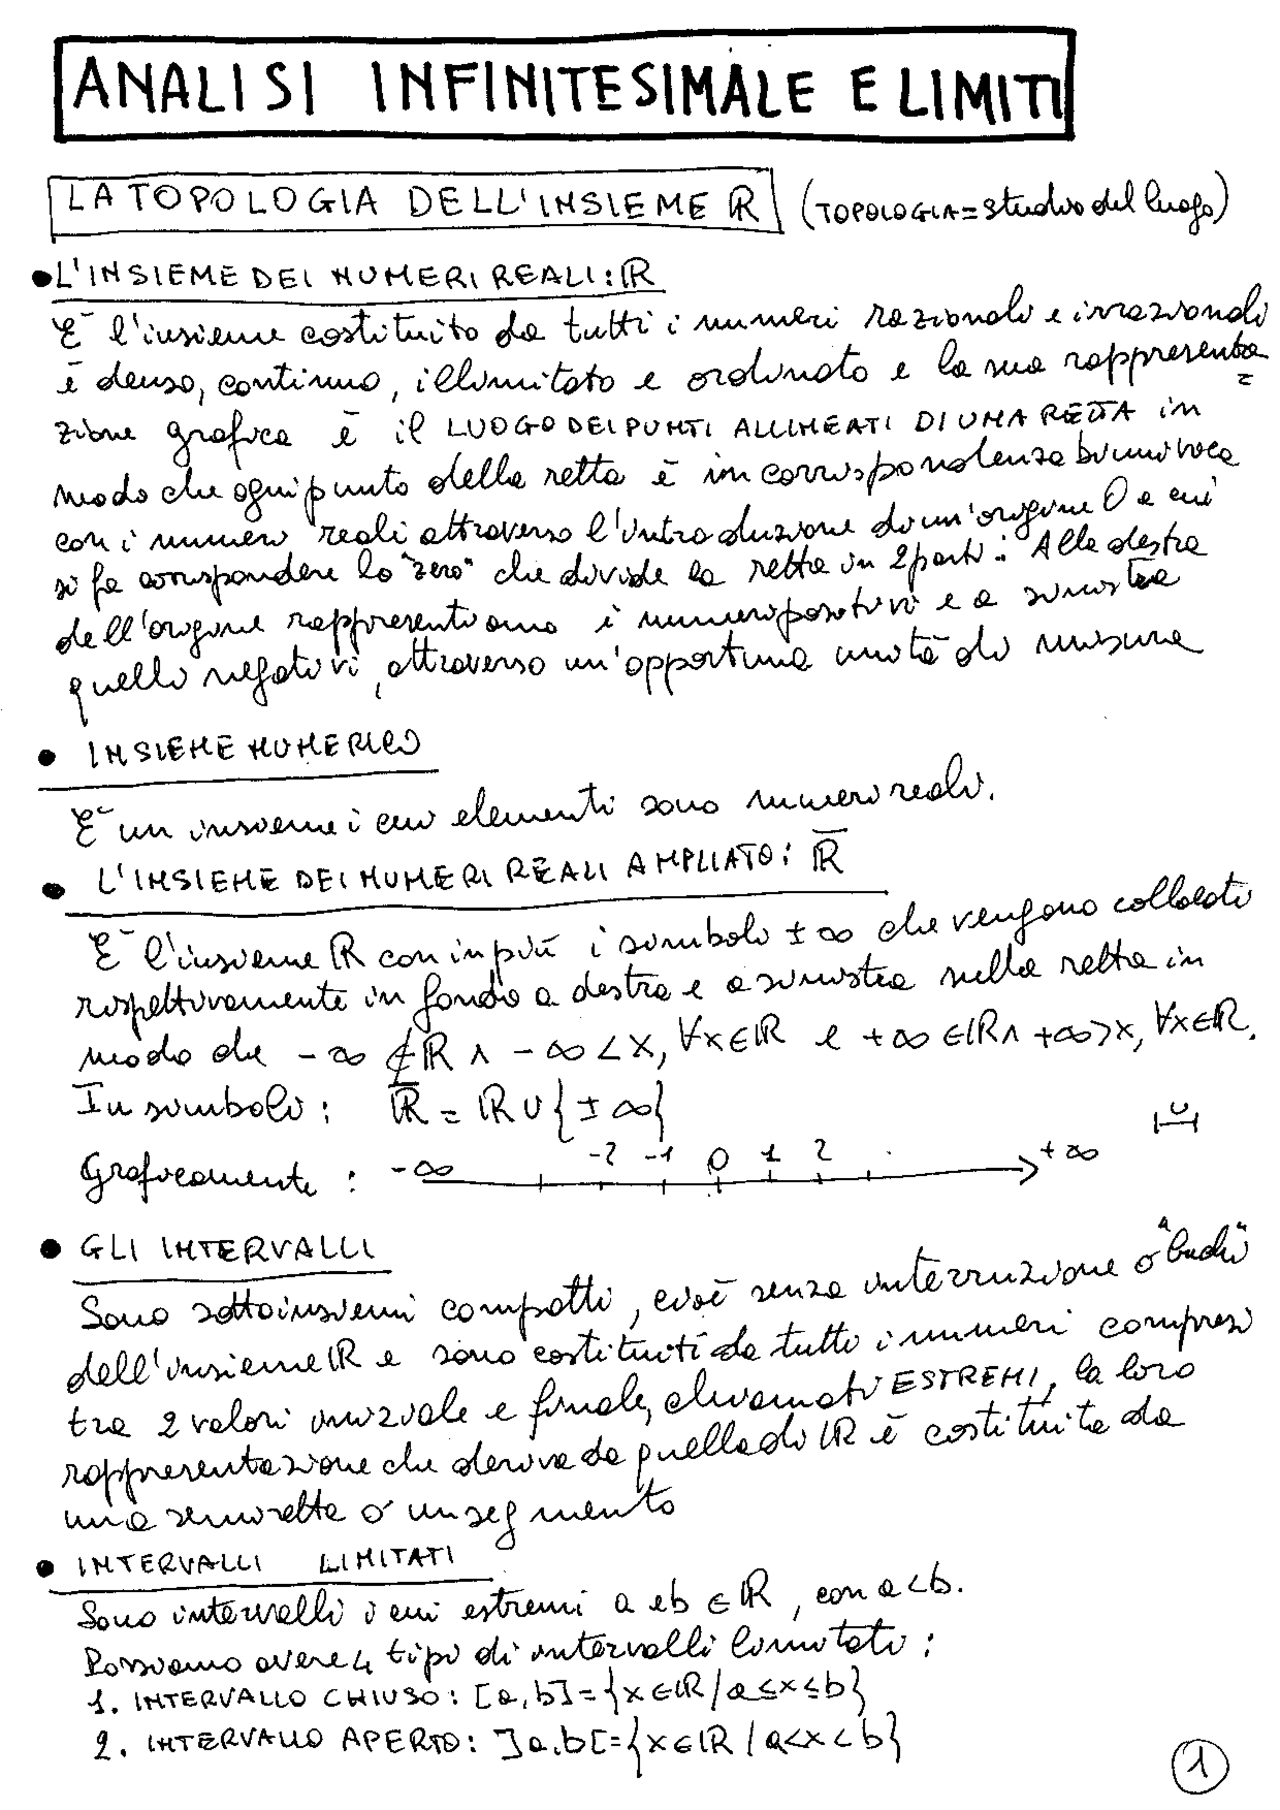 ANALISI INFINITESIMALE E LIMITI
LA TOPOLOGIA DELL'INSIEME ℝ (TOPOLOGIA = studio del luogo)
• L'INSIEME DEI NUMERI REALI: ℝ
È l'insieme costituito da tutti i numeri razionali e irrazionali
è denso, continuo, illimitato e ordinato e la sua rappresenta=
zione grafica è il LUOGO DEI PUNTI ALLINEATI DI UNA RETTA in
modo che ogni punto della retta è in corrispondenza biunivoca
con i numeri reali attraverso l'introduzione di un'origine O a cui
si fa corrispondere lo "zero" che divide la retta in 2 parti: Alla destra
dell'origine rappresentiamo i numeri positivi e a sinistra
quelli negativi, attraverso un'opportuna unità di misura
• INSIEME NUMERICO
È un insieme i cui elementi sono numeri reali.
• L'INSIEME DEI NUMERI REALI AMPLIATO: ℝ̅
È l'insieme ℝ con in più i simboli ±∞ che vengono collocati
rispettivamente in fondo a destra e a sinistra sulla retta in
modo che -∞ ∉ ℝ ∧ -∞ < x, ∀x∈ℝ e +∞ ∈ ℝ ∧ +∞ > x, ∀x∈ℝ.
In simboli: ℝ̅ = ℝ ∪ {±∞}
Graficamente: -∞ -2 -1 0 1 2 +∞
• GLI INTERVALLI
Sono sottoinsiemi compatti, cioè senza interruzione o "buchi"
dell'insieme ℝ e sono costituiti da tutti i numeri compresi
tra 2 valori iniziale e finale, chiamati ESTREMI, la loro
rappresentazione che deriva da quella di ℝ è costituita da
una semiretta o un segmento
• INTERVALLI LIMITATI
Sono intervalli i cui estremi a e b ∈ ℝ, con a<b.
Possiamo avere 4 tipi di intervalli limitati:
1. INTERVALLO CHIUSO: [a,b]={x∈ℝ/a≤x≤b}
2. INTERVALLO APERTO: ]a,b[={x∈ℝ/a<x<b}
1